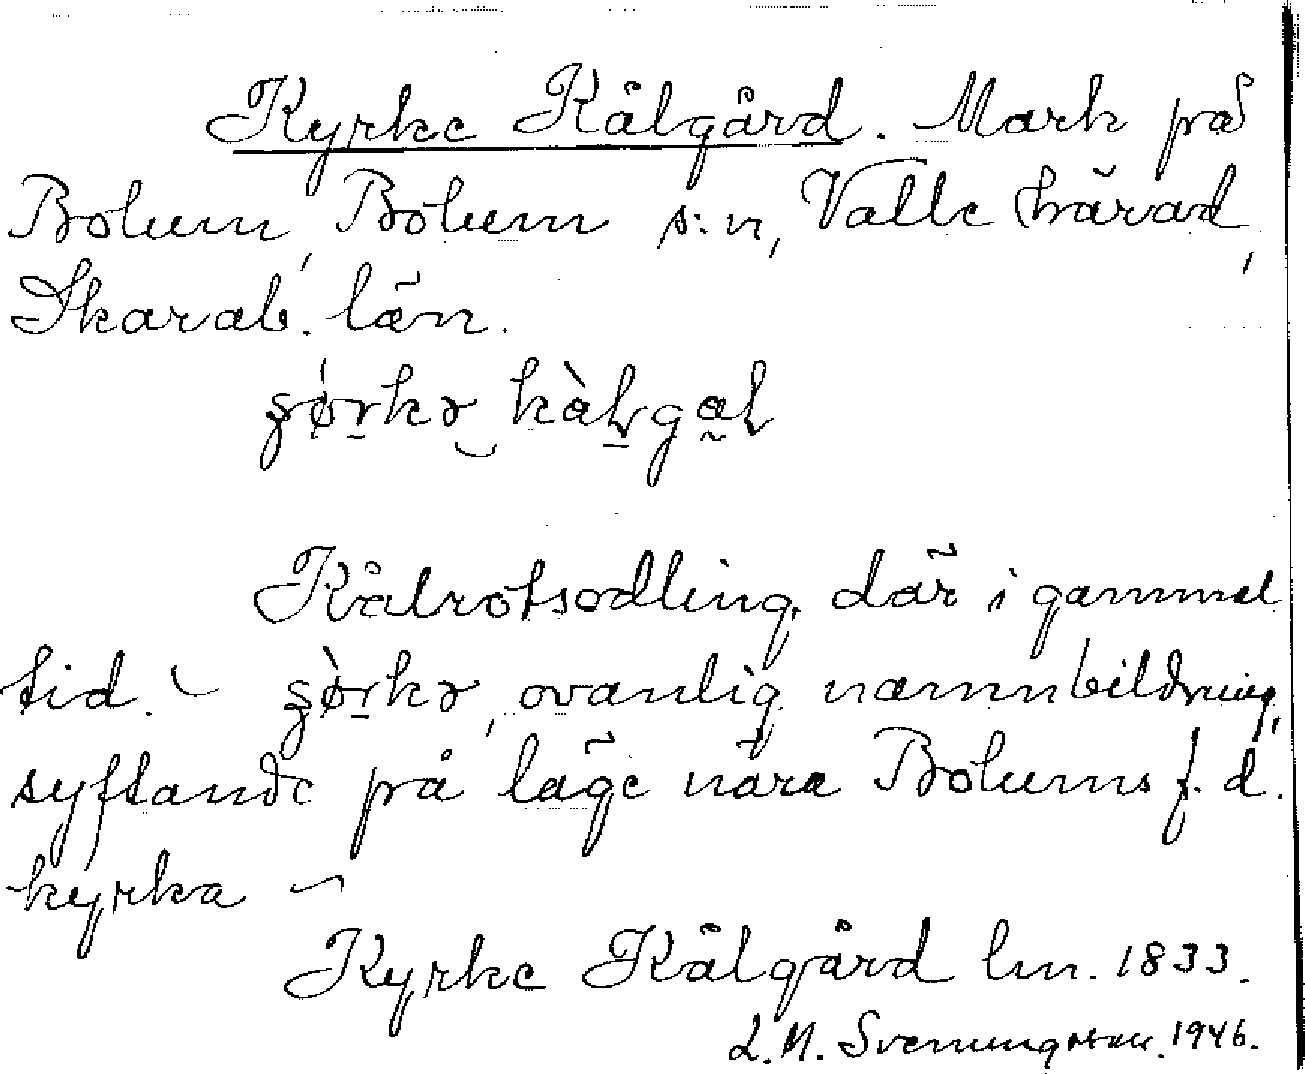 Kyrke Kålgård. Mark på
Bolum, Bolum s:n, Valle härad,
Skarab. län.

Kålrotsodling där i gammal
tid. – ovanlig namnbildning,
syftande på läge nära Bolums f.d.
kyrka –
Kyrke Kålgård lm. 1833.
L.M. Svenungsson. 1946.